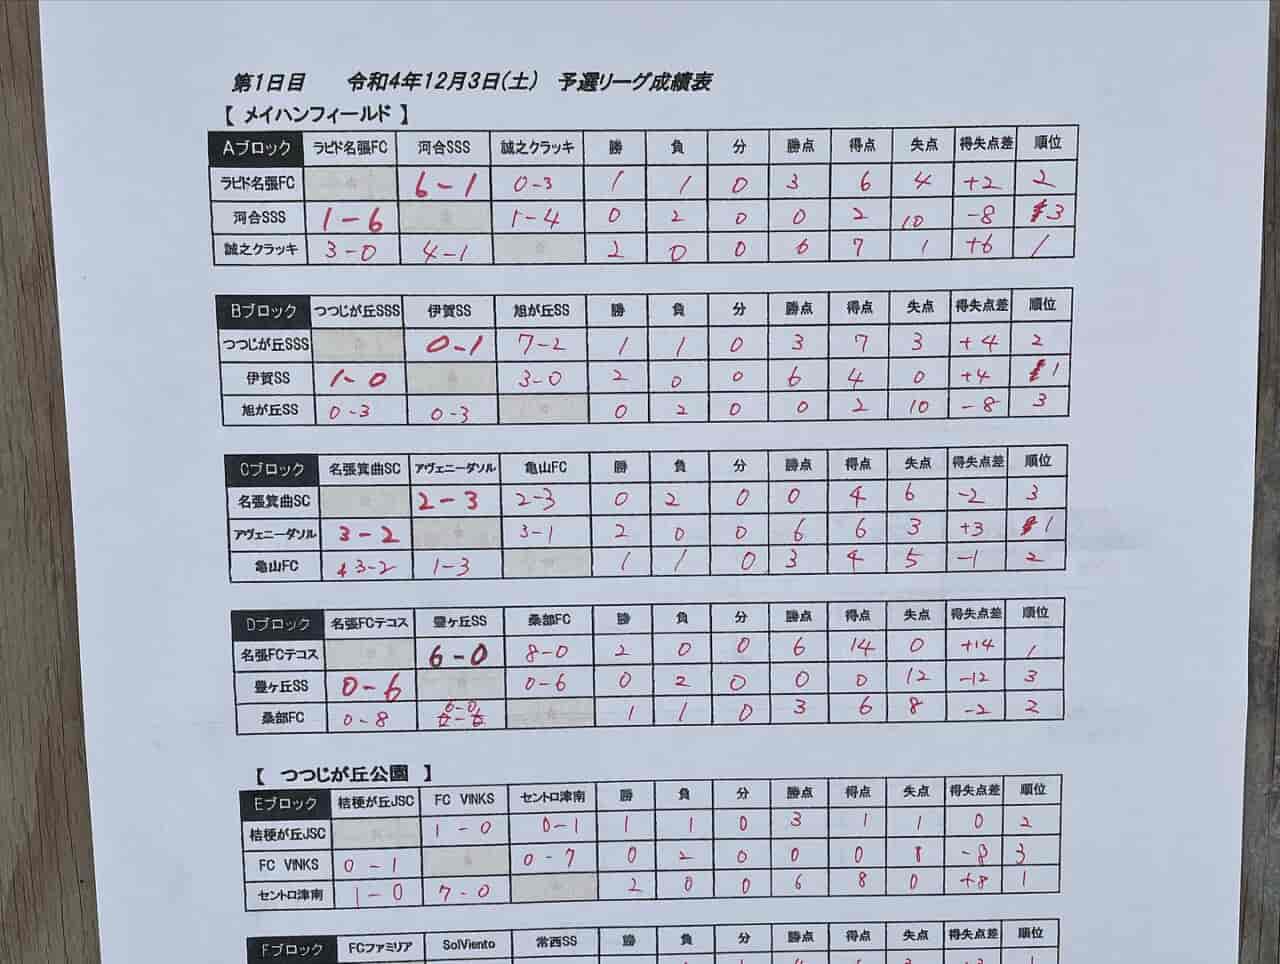 第1日目 令和4年12月3日(土) 予選リーグ成績表
【 メイハンフィールド 】
Aブロック ラピド名張FC 河合SSS 誠之クラッキ 勝 負 分 勝点 得点 失点 得失点差 順位
ラピド名張FC 6-1 0-3 1 1 0 3 6 4 +2 2
河合SSS 1-6 1-4 0 2 0 0 2 10 -8 3
誠之クラッキ 3-0 4-1 2 0 0 6 7 1 +6 1
Bブロック つつじが丘SSS 伊賀SS 旭が丘SS 勝 負 分 勝点 得点 失点 得失点差 順位
つつじが丘SSS 0-1 7-2 1 1 0 3 7 3 +4 2
伊賀SS 1-0 3-0 2 0 0 6 4 0 +4 1
旭が丘SS 0-3 0-3 0 2 0 0 2 10 -8 3
Cブロック 名張箕曲SC アヴェニーダソル 亀山FC 勝 負 分 勝点 得点 失点 得失点差 順位
名張箕曲SC 2-3 2-3 0 2 0 0 4 6 -2 3
アヴェニーダソル 3-2 3-1 2 0 0 6 6 3 +3 1
亀山FC 3-2 1-3 1 1 0 3 4 5 -1 2
Dブロック 名張FCテコス 豊ヶ丘SS 桑部FC 勝 負 分 勝点 得点 失点 得失点差 順位
名張FCテコス 6-0 8-0 2 0 0 6 14 0 +14 1
豊ヶ丘SS 0-6 0-6 0 2 0 0 0 12 -12 3
桑部FC 0-8 1 1 0 3 6 8 -2 2
【 つつじが丘公園 】
Eブロック 桔梗が丘JSC FC VINKS セントロ津南 勝 負 分 勝点 得点 失点 得失点差 順位
桔梗が丘JSC 1-0 0-1 1 1 0 3 1 1 0 2
FC VINKS 0-1 0-7 0 2 0 0 0 8 -8 3
セントロ津南 1-0 7-0 2 0 0 6 8 0 +8 1
Fブロック FCファミリア SolViento 常西SS 勝 負 分 勝点 得点 失点 得失点差 順位